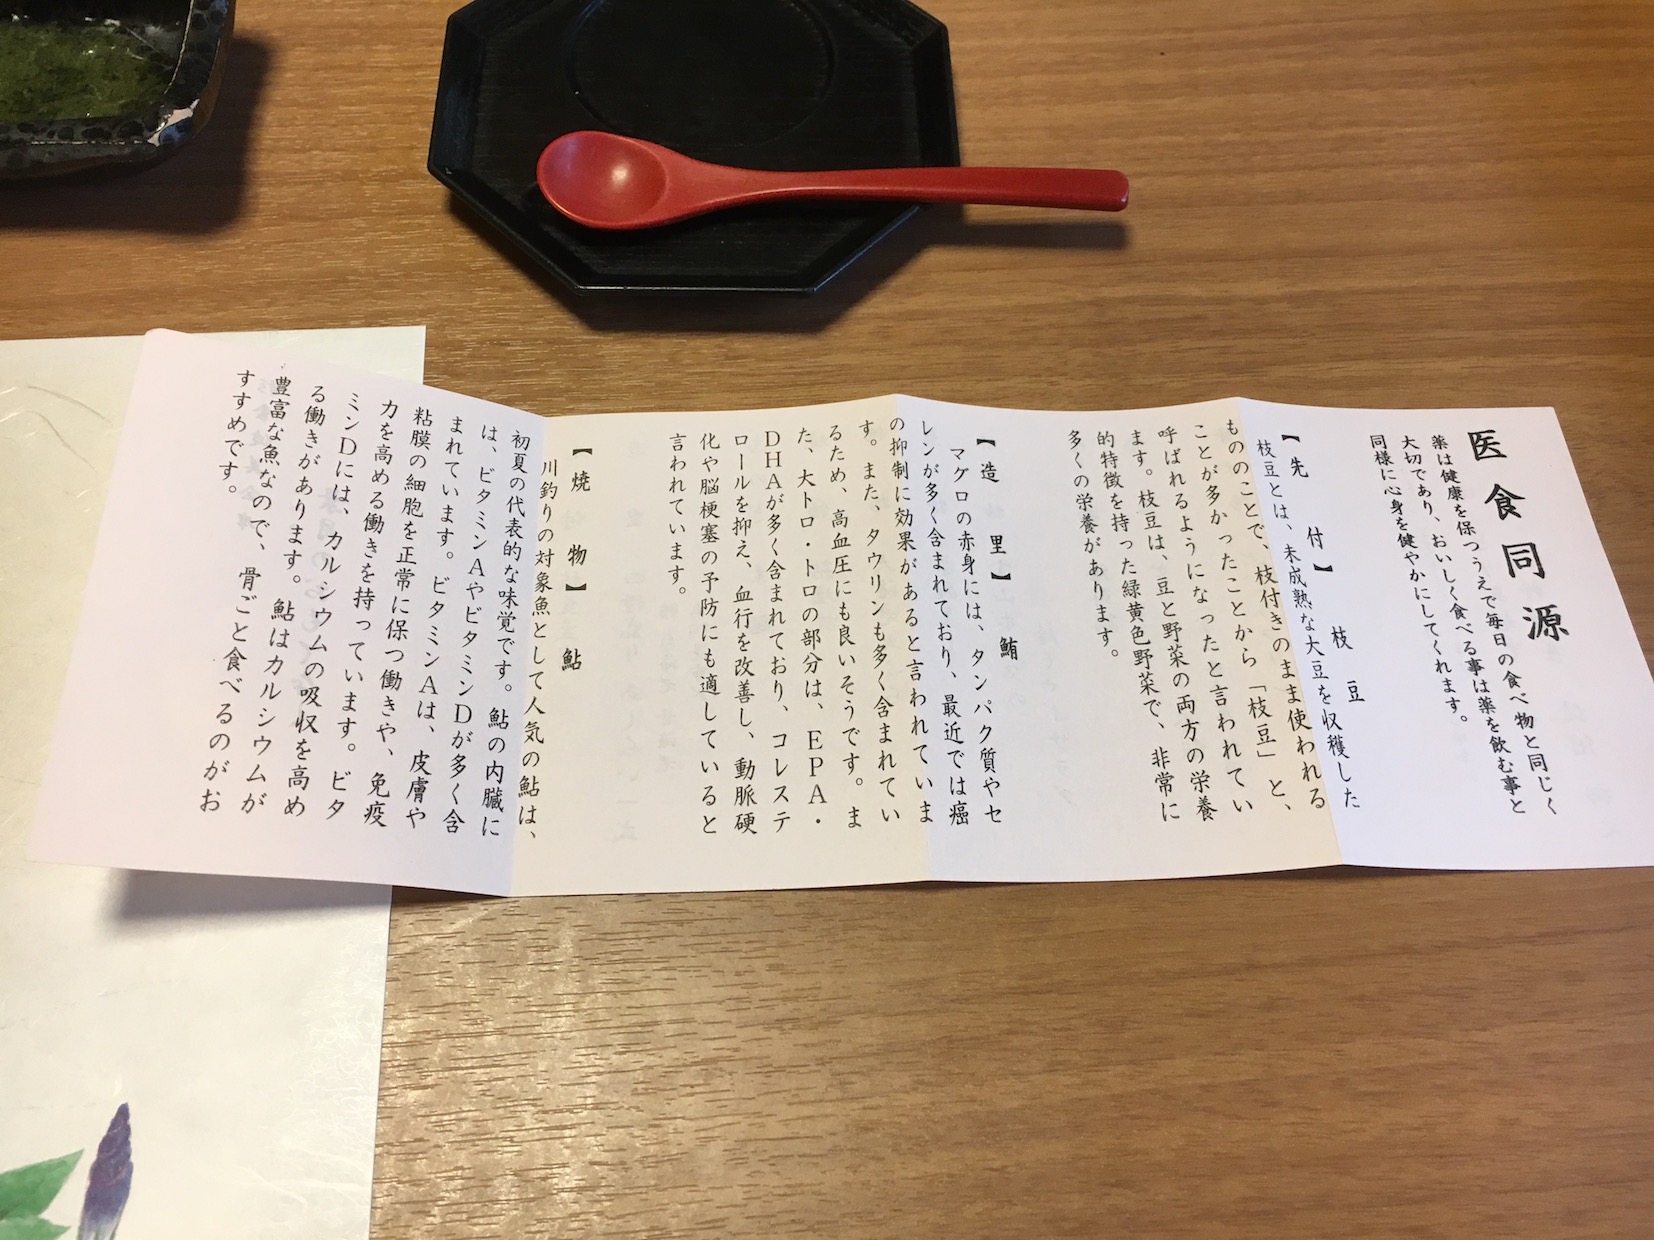 医食同源
薬は健康を保つうえで毎日の食べ物と同じく
大切であり、おいしく食べる事は薬を飲む事と
同様に心身を健やかにしてくれます。
【先　付】　枝　豆
枝豆とは、未成熟な大豆を収穫した
もののことで、枝付きのまま使われる
ことが多かったことから「枝豆」と、
呼ばれるようになったと言われてい
ます。枝豆は、豆と野菜の両方の栄養
的特徴を持った緑黄色野菜で、非常に
多くの栄養があります。
【造　里】　鮪
マグロの赤身には、タンパク質やセ
レンが多く含まれており、最近では癌
の抑制に効果があると言われていま
す。また、タウリンも多く含まれてい
るため、高血圧にも良いそうです。ま
た、大トロ・トロの部分は、ＥＰＡ・
ＤＨＡが多く含まれており、コレステ
ロールを抑え、血行を改善し、動脈硬
化や脳梗塞の予防にも適していると
言われています。
【焼　物】　鮎
川釣りの対象魚として人気の鮎は、
初夏の代表的な味覚です。鮎の内臓に
は、ビタミンＡやビタミンＤが多く含
まれています。ビタミンＡは、皮膚や
粘膜の細胞を正常に保つ働きや、免疫
力を高める働きを持っています。ビタ
ミンＤには、カルシウムの吸収を高め
る働きがあります。鮎はカルシウムが
豊富な魚なので、骨ごと食べるのがお
すすめです。